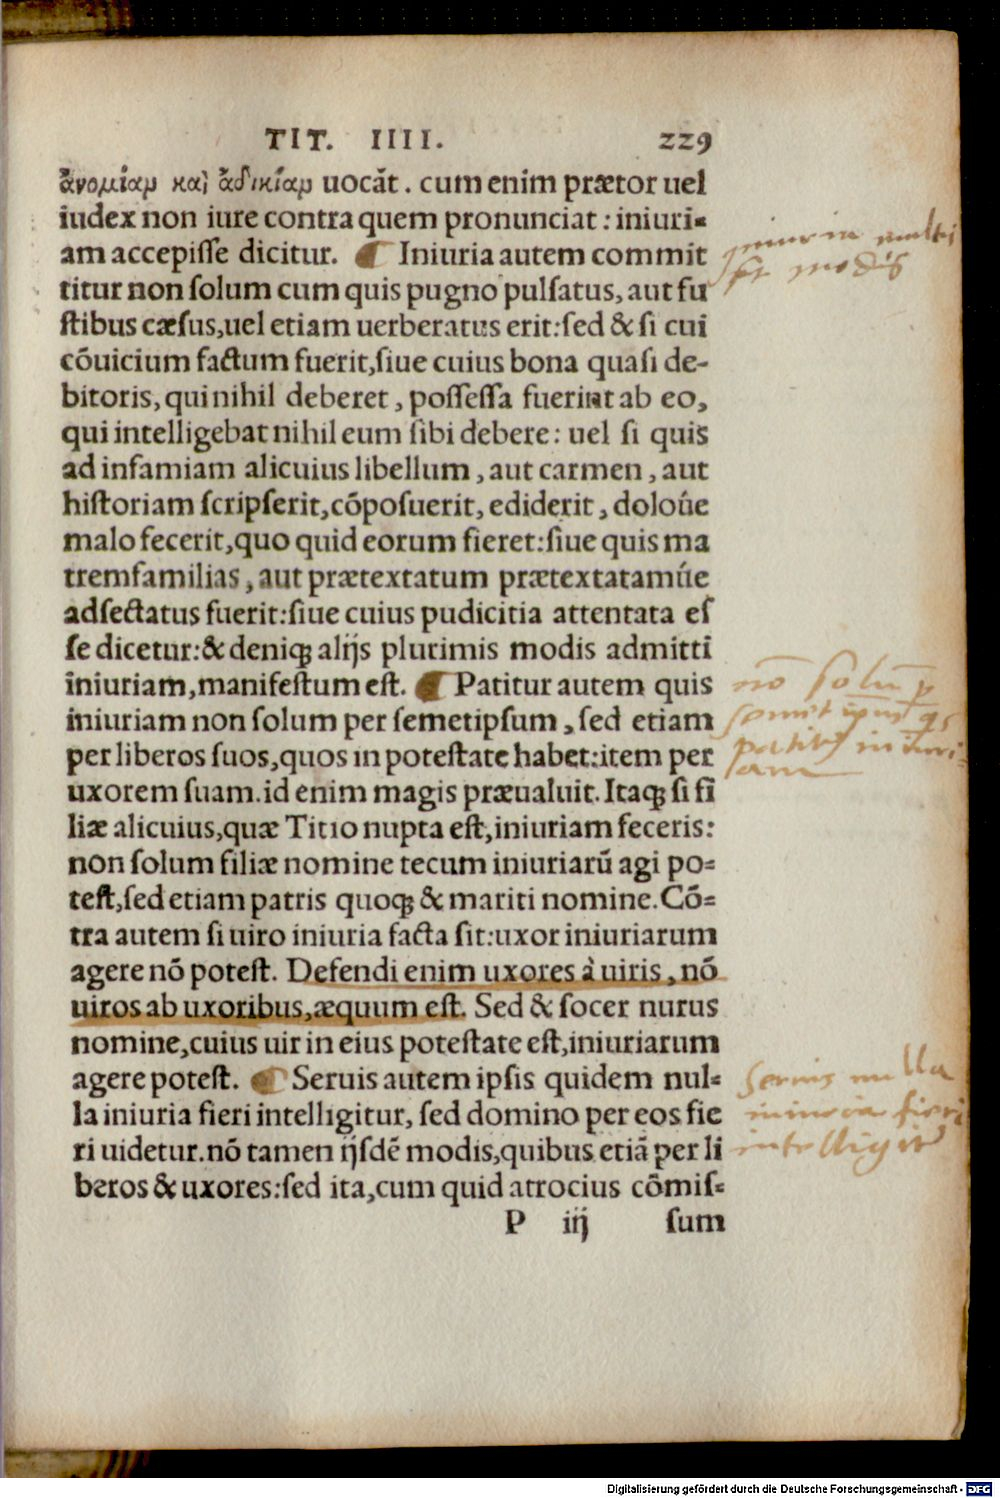 TIT. IIII. 229
ἀνομίαμ καὶ ἀδικίαμ uocāt. cum enim prætor uel
iudex non iure contra quem pronunciat: iniuri=
am accepiſſe dicitur. ¶ Iniuria autem commit
titur non ſolum cum quis pugno pulſatus, aut fu
ſtibus cæſus, uel etiam uerberatus erit: ſed & ſi cui
cōuicium factum fuerit, ſiue cuius bona quaſi de-
bitoris, qui nihil deberet, poſſeſſa fuerint ab eo,
qui intelligebat nihil eum ſibi debere: uel ſi quis
ad infamiam alicuius libellum, aut carmen, aut
hiſtoriam ſcripſerit, cōpoſuerit, ediderit, doloûe
malo fecerit, quo quid eorum fieret: ſiue quis ma
tremfamilias, aut prætextatum prætextatamûe
adſectatus fuerit: ſiue cuius pudicitia attentata eſ
ſe dicetur: & deniq; alijs plurimis modis admitti
iniuriam, manifeſtum eſt. ¶ Patitur autem quis
iniuriam non ſolum per ſemetipſum, ſed etiam
per liberos ſuos, quos in poteſtate habet: item per
uxorem ſuam. id enim magis præualuit. Itaq; ſi fi
liæ alicuius, quæ Titio nupta eſt, iniuriam feceris:
non ſolum filiæ nomine tecum iniuriarū agi po=
teſt, ſed etiam patris quoq; & mariti nomine. Cō=
tra autem ſi uiro iniuria facta ſit: uxor iniuriarum
agere nō poteſt. Defendi enim uxores à uiris, nō
uiros ab uxoribus, æquum eſt. Sed & ſocer nurus
nomine, cuius uir in eius poteſtate eſt, iniuriarum
agere poteſt. ¶ Seruis autem ipſis quidem nul=
la iniuria fieri intelligitur, ſed domino per eos fie
ri uidetur. nō tamen ijſdē modis, quibus etiā per li
beros & uxores: ſed ita, cum quid atrocius cōmiſ=
P iij ſum
iniuria multis
fit modis
nō ſolū p
ſemet ipsū qs
patitur iniuri
am
Seruis nulla
iniuria fieri
intelligitur
Digitalisierung gefördert durch die Deutsche Forschungsgemeinschaft - DFG